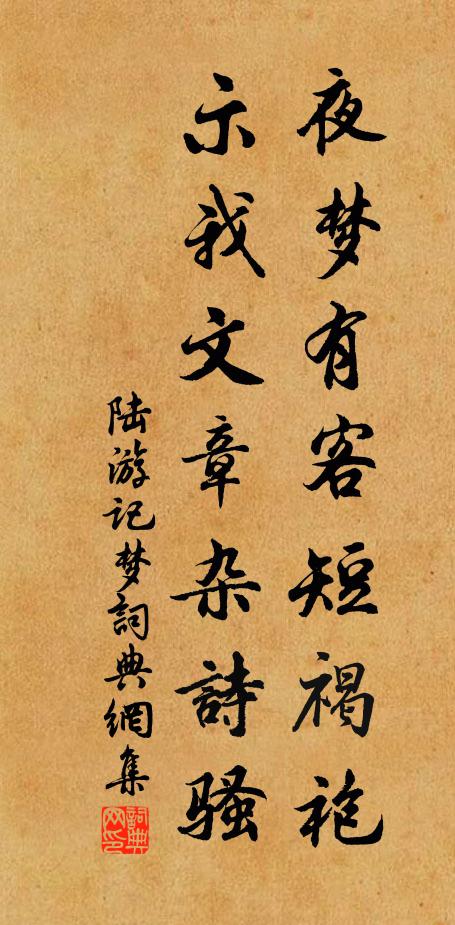 夜梦有客短褐袍
示我文章杂詩骚
陆游记梦詞典網集
詞典网印